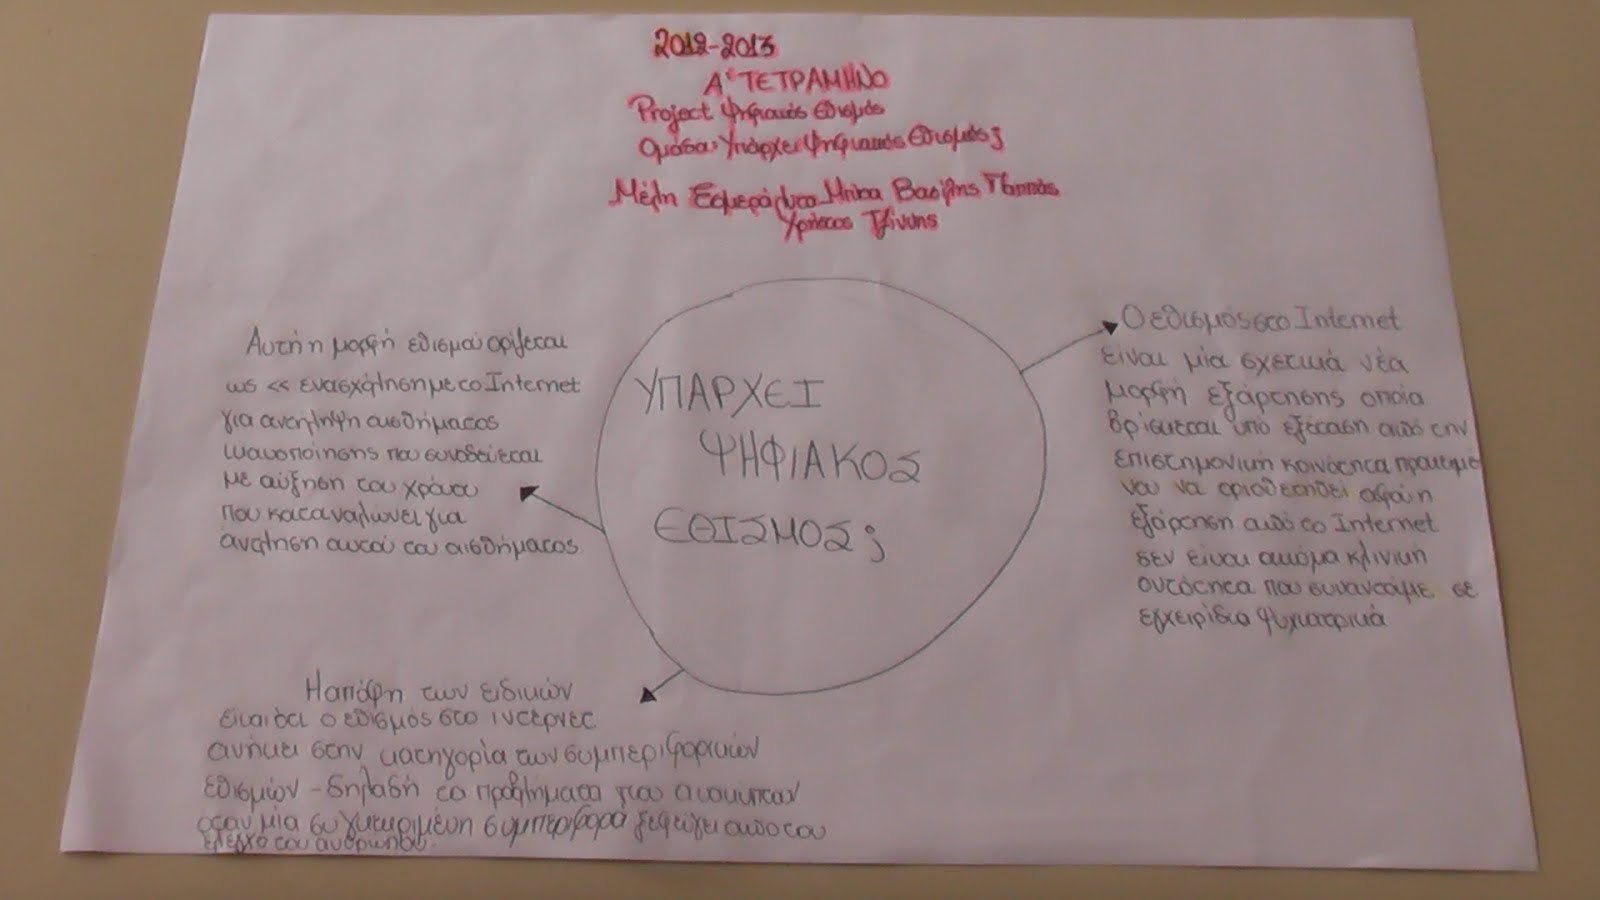 2012-2013
Α' ΤΕΤΡΑΜΗΝΟ
Project Ψηφιακός Εθισμός
Ομάδα: Υπάρχει Ψηφιακός Εθισμός;
Μέλη Εσμεράλντα Μπίκα Βασίλης Παππάς
Χρήστος Τζίνης
ΥΠΑΡΧΕΙ
ΨΗΦΙΑΚΟΣ
ΕΘΙΣΜΟΣ;
Αυτή η μορφή εθισμού ορίζεται
ως << ενασχόληση με το Internet
για ανάληψη αισθήματος
ικανοποίησης που συνοδεύεται
με αύξηση του χρόνου
που καταναλώνει για
άντληση αυτού του αισθήματος
Ο εθισμός στο Internet
είναι μία σχετικά νέα
μορφή εξάρτησης οποία
βρίσκεται υπό εξέταση από την
επιστημονική κοινότητα προκειμέ
νου να οριοθετηθεί αφού η
εξάρτηση από το Internet
δεν είναι ακόμα κλινική
οντότητα που συναντάμε σε
εγχειρίδια ψυχιατρικά
Η απόψη των ειδικών
είναι ότι ο εθισμός στο ιντερνετ
ανήκει στην κατηγορία των συμπεριφορικών
εθισμών - δηλαδή τα προβλήματα που ανακύπτουν
όταν μία συγκεκριμένη συμπεριφορά ξεφεύγει απο τον
έλεγχο του ανθρώπου.